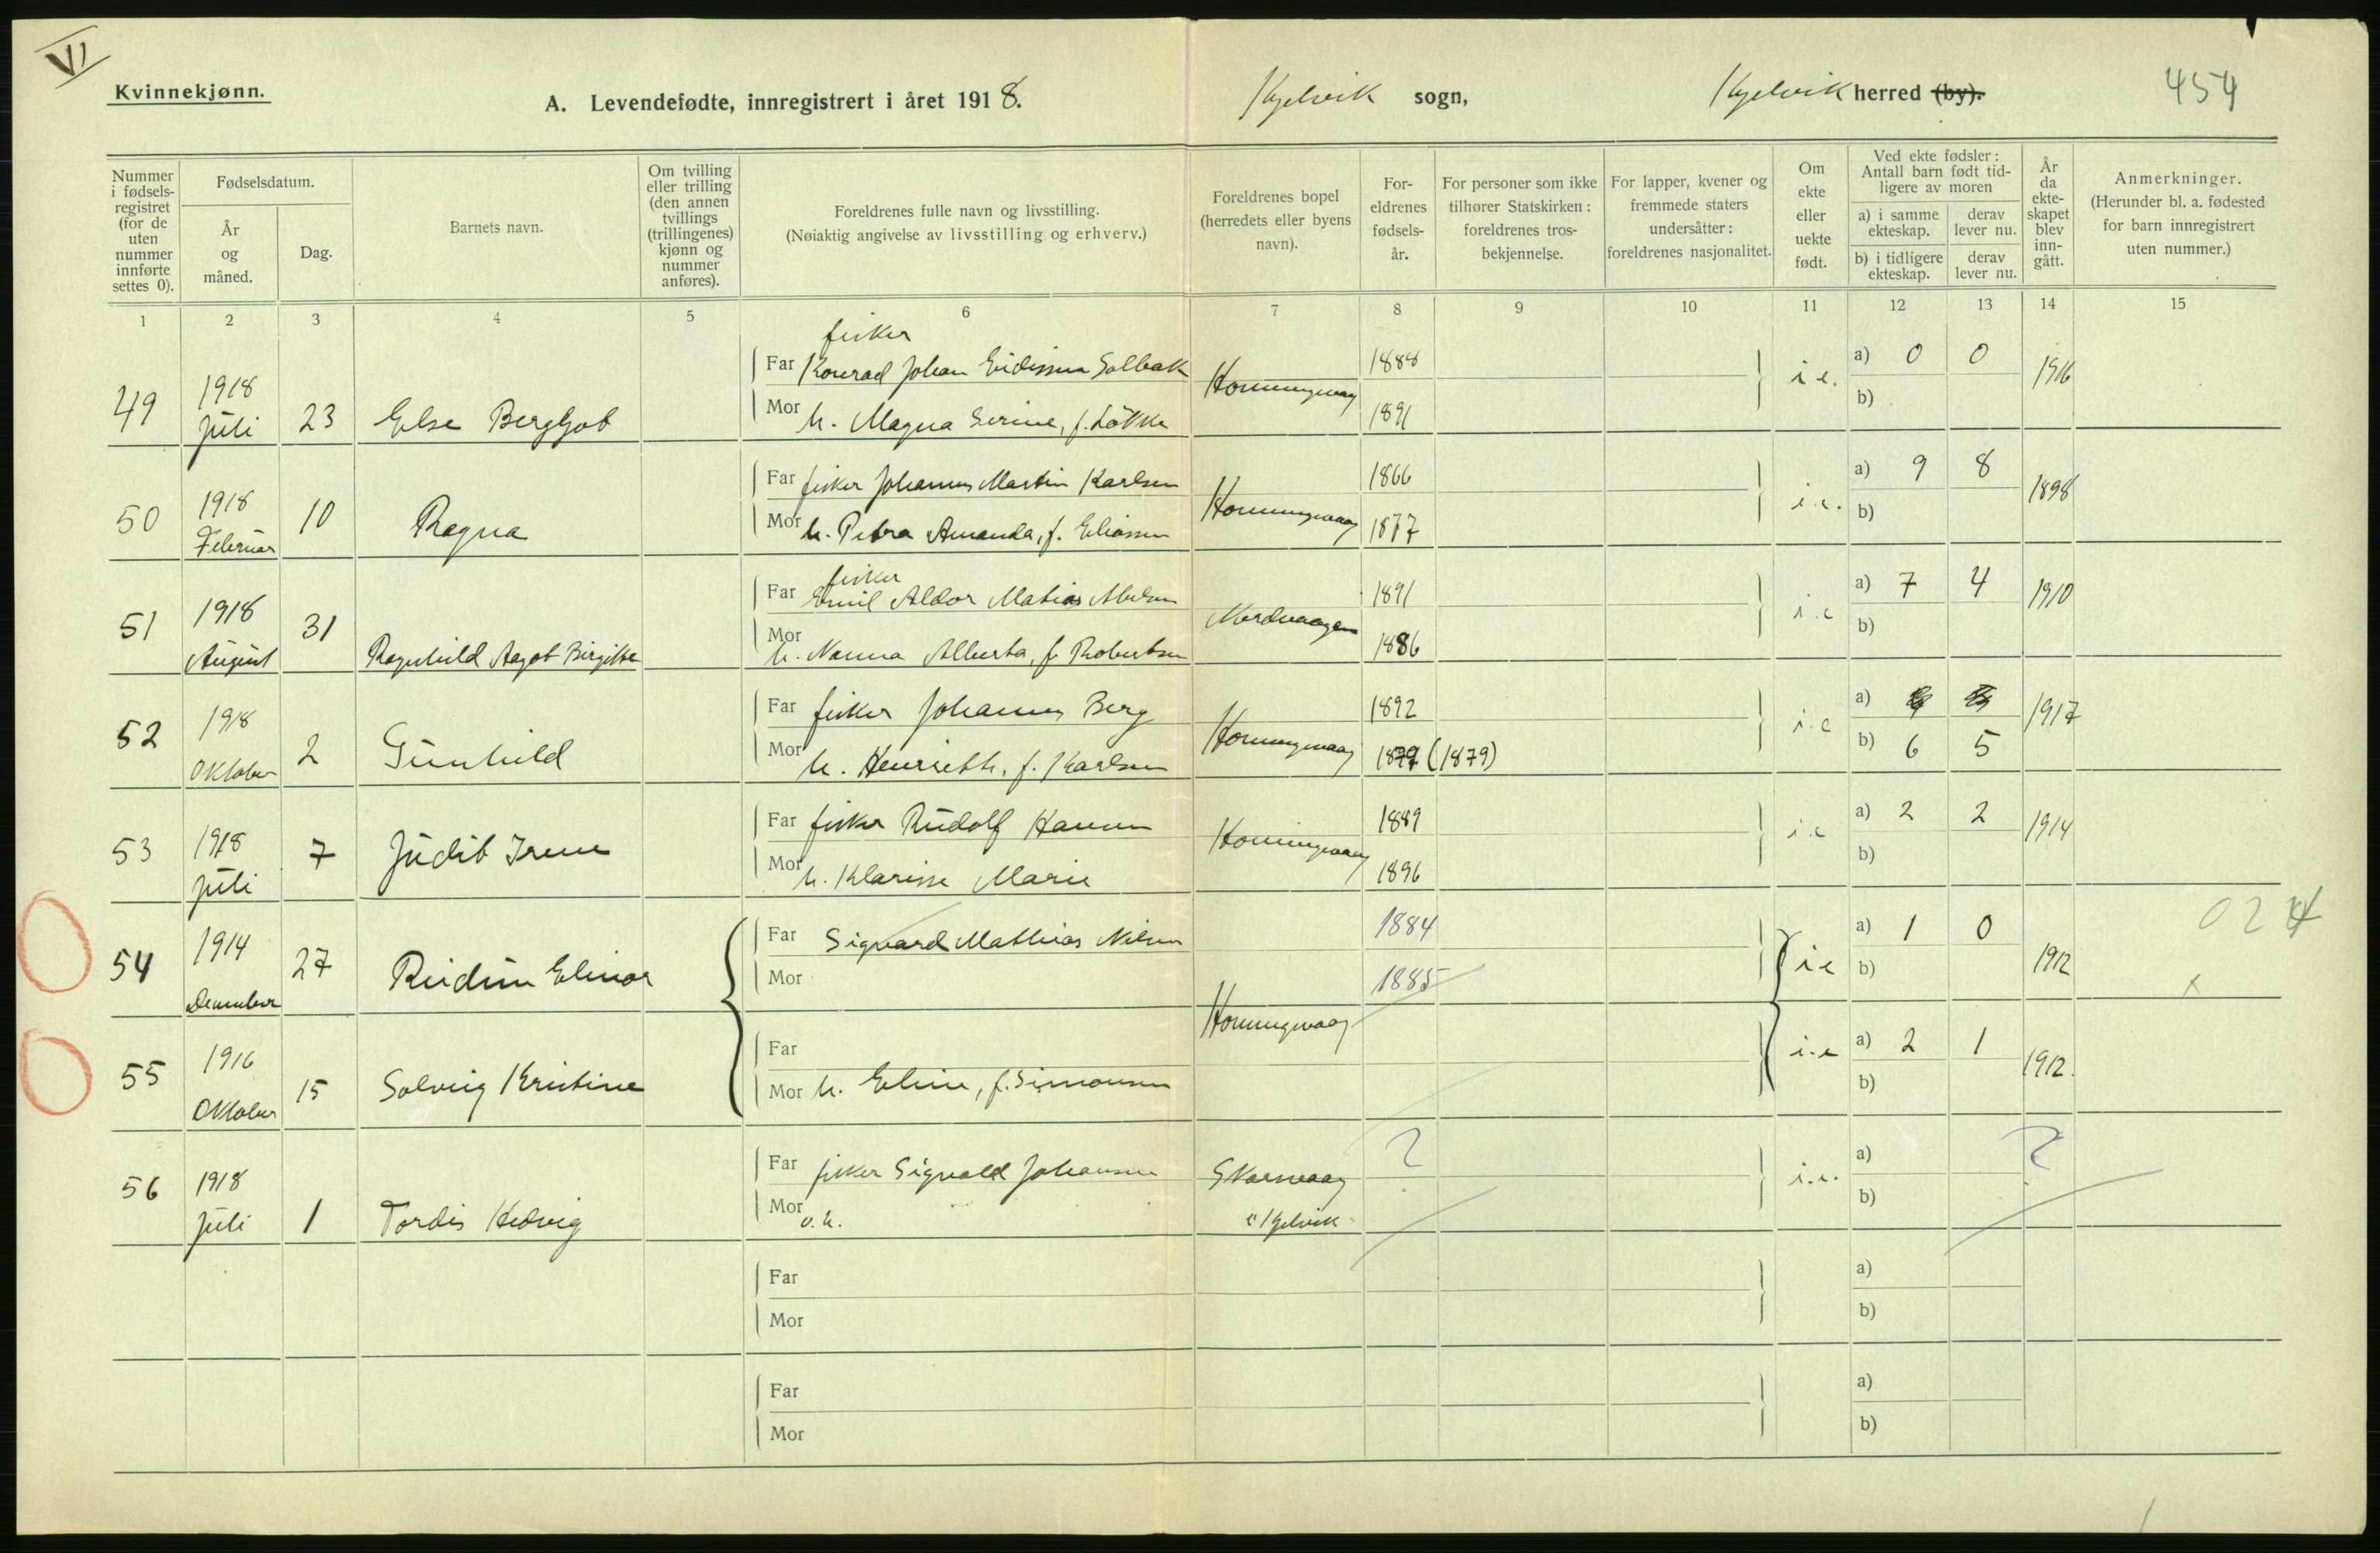 VI
Kvinnekjønn.
A. Levendefødte, innregistrert i året 1918.
Kjelvik sogn,
Kjelvik herred (by).
454
Nummer i fødsels-registret (for de uten nummer innførte settes 0).
Fødselsdatum.
År og måned.
Dag.
Barnets navn.
Om tvilling eller trilling (den annen tvillings (trillingenes) kjønn og nummer anføres).
Foreldrenes fulle navn og livsstilling.
(Nøiaktig angivelse av livsstilling og erhverv.)
Foreldrenes bopel (herredets eller byens navn).
For-eldrenes fødsels-år.
For personer som ikke tilhører Statskirken: foreldrenes tros-bekjennelse.
For lapper, kvener og fremmede staters undersåtter: foreldrenes nasjonalitet.
Om ekte eller uekte født.
Ved ekte fødsler: Antall barn født tid-ligere av moren
a) i samme ekteskap.
derav lever nu.
b) i tidligere ekteskap.
derav lever nu.
År da ekte-skapet blev inn-gått.
Anmerkninger.
(Herunder bl. a. fødested for barn innregistrert uten nummer.)
1 2 3 4 5 6 7 8 9 10 11 12 13 14 15
49 1918 Juli 23 Else Bergljot
fisker
Far Konrad Johan Eidissen Solbak Honningsvaag 1888 i e. a) 0 0 1916
Mor h. Magna Serine, f. Løkke 1891 b)
50 1918 Februar 10 Ragna
Far fisker Johannes Martin Karlsen Honningsvaag 1866 i.e. a) 9 8 1898
Mor h. Petra Amanda, f. Eliassen 1877 b)
51 1918 August 31 Ragnhild Aagot Birgitte
fisker
Far Emil Aldor Matias Abelsen Nordvaagen 1891 i.e a) 7 4 1910
Mor h. Nanna Alberta, f. Robertsen 1886 b)
52 1918 Oktober 2 Gunhild
Far fisker Johannes Berg Honningsvaag 1892 i.e a) 1917
Mor h. Henriette, f. Karlsen (1879) b) 6 5
53 1918 Juli 7 Judit Irene
Far fisker Rudolf Hansen Honningsvaag 1889 i.e a) 2 2 1914
Mor h. Klarisse Marie 1896 b)
54 1914 December 27 Reidun Elinor
Far Sigvard Mathias Nilsen 1884 i e a) 1 0 1912 02 4
Mor 1885 b) x
Honningsvaag
55 1916 Oktober 15 Solveig Kristine
Far i.e a) 2 1 1912.
Mor h. Eline, f. Simonsen b)
56 1918 Juli 1 Tordis Hedvig
Far fisker Sigvald Johansen Skarsvaag ? i.e. a) ?
Mor o.h. i Kjelvik b)
Far a)
Mor b)
Far a)
Mor b)